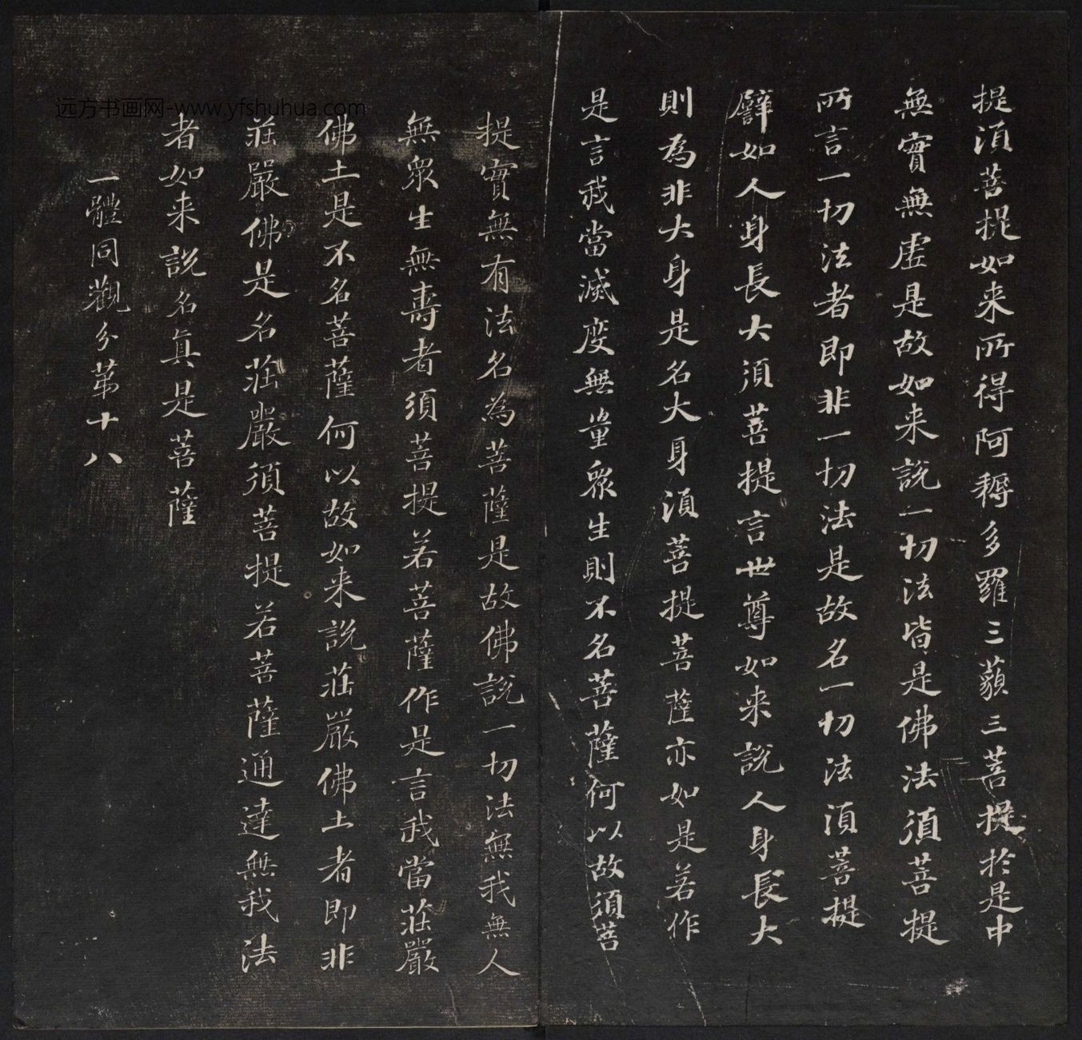 提須菩提如来所得阿耨多羅三藐三菩提於是中
無實無虛是故如来說一切法皆是佛法須菩提
所言一切法者即非一切法是故名一切法須菩提
譬如人身長大須菩提言世尊如来說人身長大
則為非大身是名大身須菩提菩薩亦如是若作
是言我當滅度無量眾生則不名菩薩何以故須菩
提實無有法名為菩薩是故佛說一切法無我無人
無眾生無壽者須菩提若菩薩作是言我當莊嚴
佛土是不名菩薩何以故如来說莊嚴佛土者即非
莊嚴佛是名莊嚴須菩提若菩薩通達無我法
者如来說名真是菩薩
一體同觀分第十八
远方书画网-www.yfshuhua.com